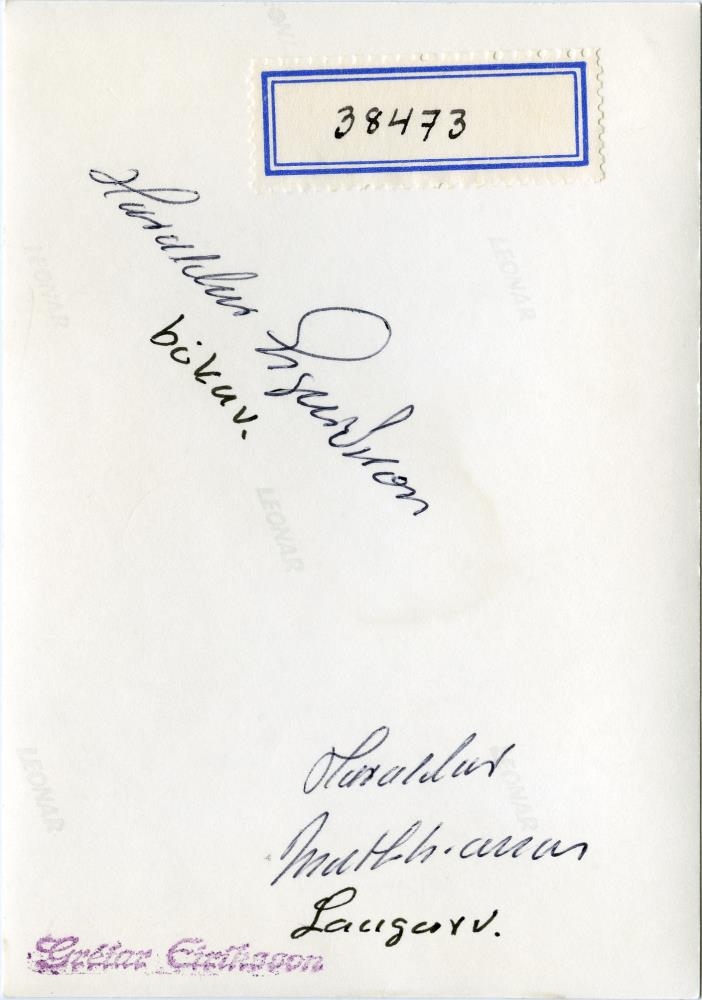 LEONAR
38473
Haraldur Sigurðsson
LEONAR
LEONAR
bókav.
LEONAR
Haraldur
LEONAR
LEONAR
Matthíasson
Laugarv.
Grétar Eiríksson